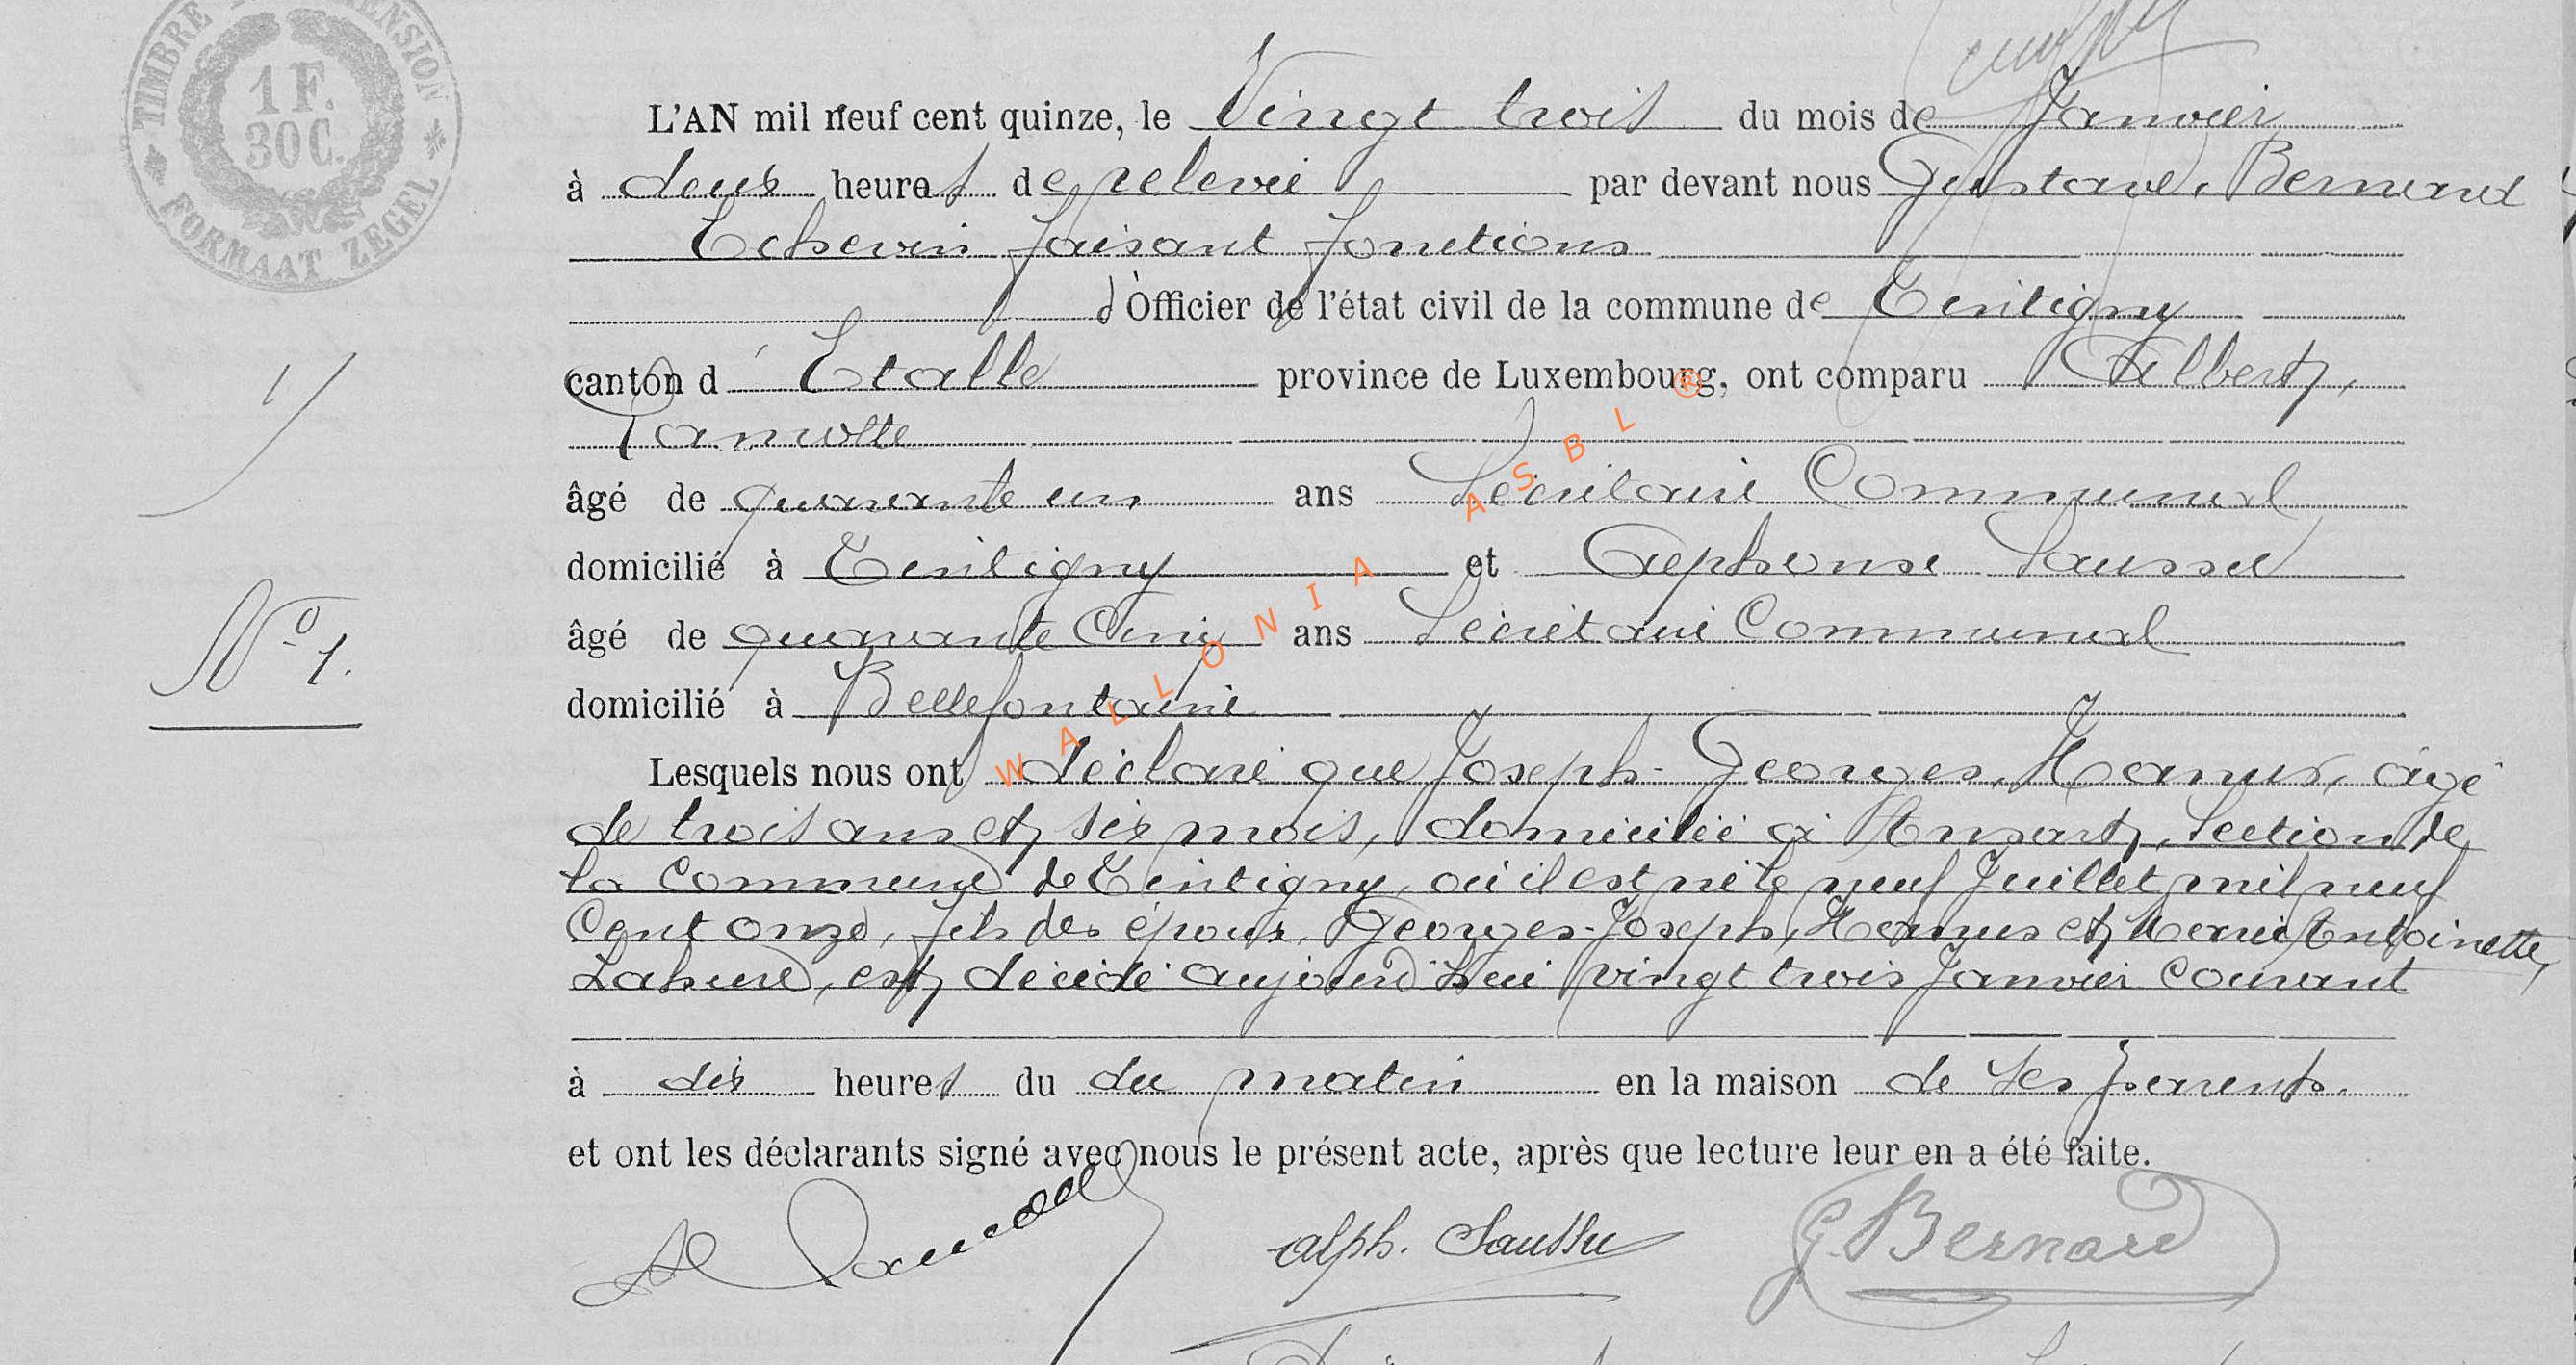 TIMBRE DIMENSION
1 F.
30 C.
FORMAAT ZEGEL
L'AN mil neuf cent quinze, le Vingt trois du mois de Janvier
à deux heures de relevée par devant nous Gustave, Bernard
Echevin faisant fonctions
d'Officier de l'état civil de la commune de Tintigny
canton d'Etalle province de Luxembourg, ont comparu Albert,
âgé de quarante un ans Secrétaire Communal
domicilié à Tintigny et Alphonse Saussu
âgé de quarante Cinq ans Secrétaire Communal
domicilié à Bellefontaine
Lesquels nous ont déclaré que Joseph-Georges, Hanus, âgé
de trois ans et six mois, domicilié à Ansart, Section de
la Commune de Tintigny, où il est né le neuf Juillet mil neuf
Cent onze, fils des époux, Georges-Joseph, Hanus et Marie Antoinette,
Lahure, est décédé aujourd'hui vingt trois Janvier Courant
à dix heures du du matin en la maison de ses parents.
et ont les déclarants signé avec nous le présent acte, après que lecture leur en a été faite.
Alph. Saussu G. Bernard
1
N° 1.
WALLONIA ASBL ®